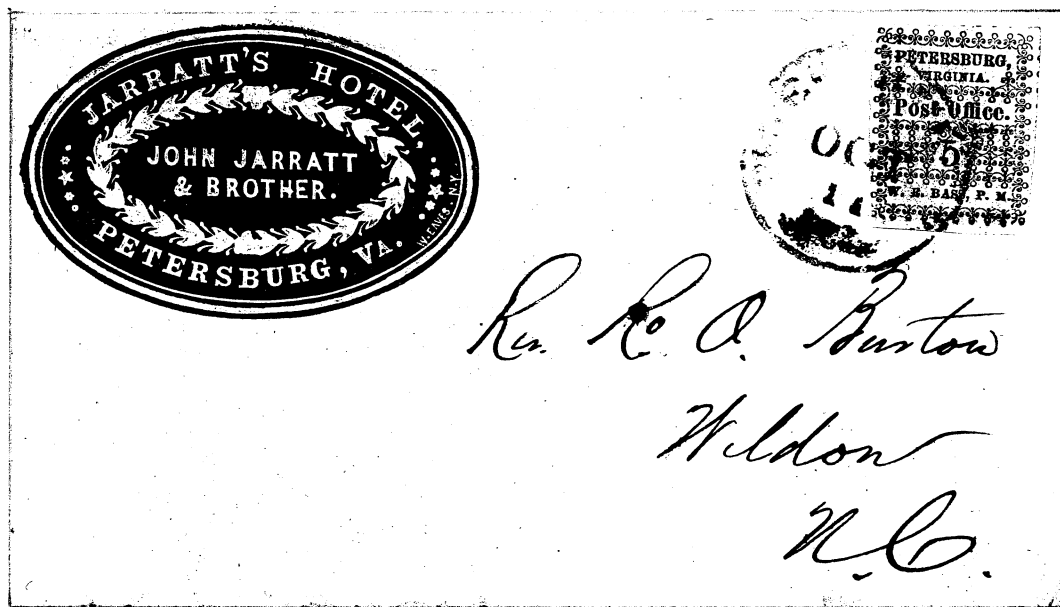 JARRATT'S HOTEL,
JOHN JARRATT
& BROTHER.
PETERSBURG, VA.
W. EAVES. N.Y.
PETERSBURG,
VIRGINIA.
Post-Office.
5
W. E. BASS, P. M.
OC
Rev. R. O. Burton
Weldon
N.C.